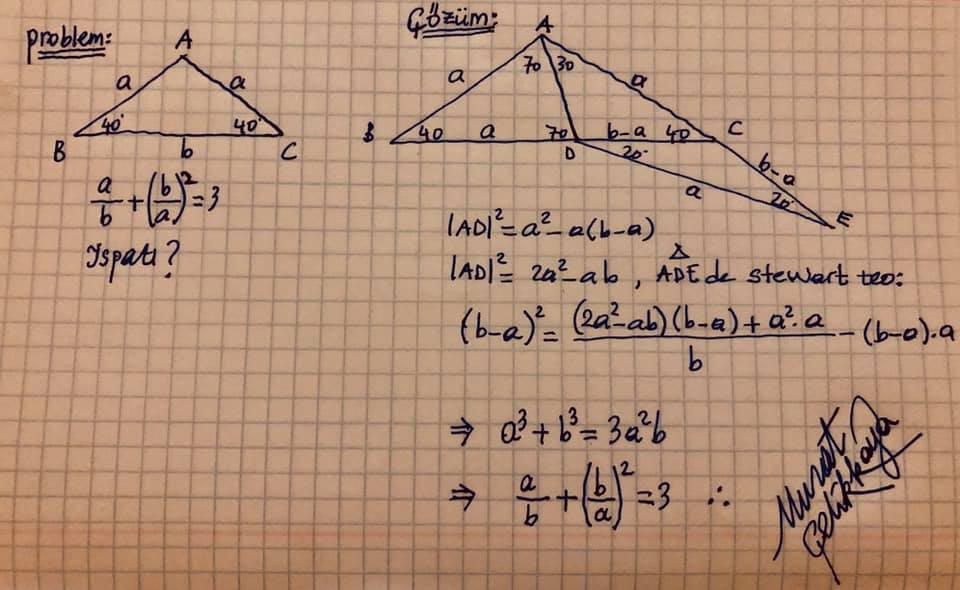 problem:
A
a a
40° 40°
B b C
a/b + (b/a)² = 3
Ispatı?
Çözüm:
A
70 30
a a
B 40 a 70 b-a 40 C
D 20° b-a
a 20° E
|AD|² = a² - a(b-a)
|AD|² = 2a² - ab , ADE de stewart teo:
(b-a)² = ((2a²-ab)(b-a) + a².a)/b - (b-a).a
⇒ a³ + b³ = 3a²b
⇒ a/b + (b/a)² = 3 ∴
Murat
Çelikkaya